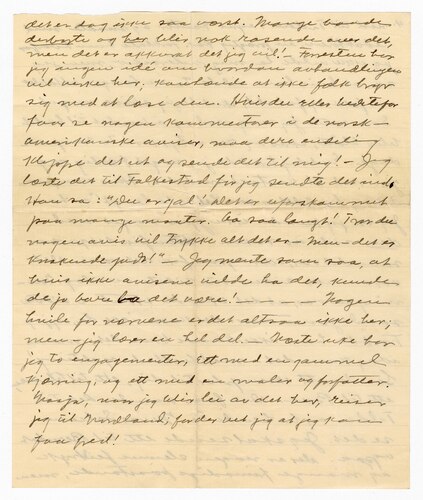 det er dog ikke saa værst. Mange baade
derborte og her blir nok rasende over det,
men det er akkurat det jeg vil! - Forresten har
jeg ingen idé om hvordan avhandlingen
vil virke her, kanhænde at ikke folk bryr
sig med at læse den. Hvis du eller bedstefar
faar se nogen kommentarer i de norsk-
amerikanske aviser, maa dere endelig
klippe det ut og sende det til mig! - Jeg
læste det til Falkestad før jeg sendte det ind.
Han sa: "Du er gal! Det er uforskammet
paa mange maater. Og saa langt! Tror du
nogen avis vil trykke alt det der - Men - det er
knakende godt!" - Jeg mente som saa, at
hvis ikke aviserne vilde ha det, kunde
de jo bare la det være! - - - - Nogen
hvile for nerverne er det altsaa ikke her;
men - jeg lærer en hel del. - Næste uke har
jeg to engagementer, ett med en gammel
kjæring, og ett med en maler og forfatter.
naar jeg blir lei av det her, reiser
jeg til Nordland, for der vet jeg at jeg kan
faa fred!